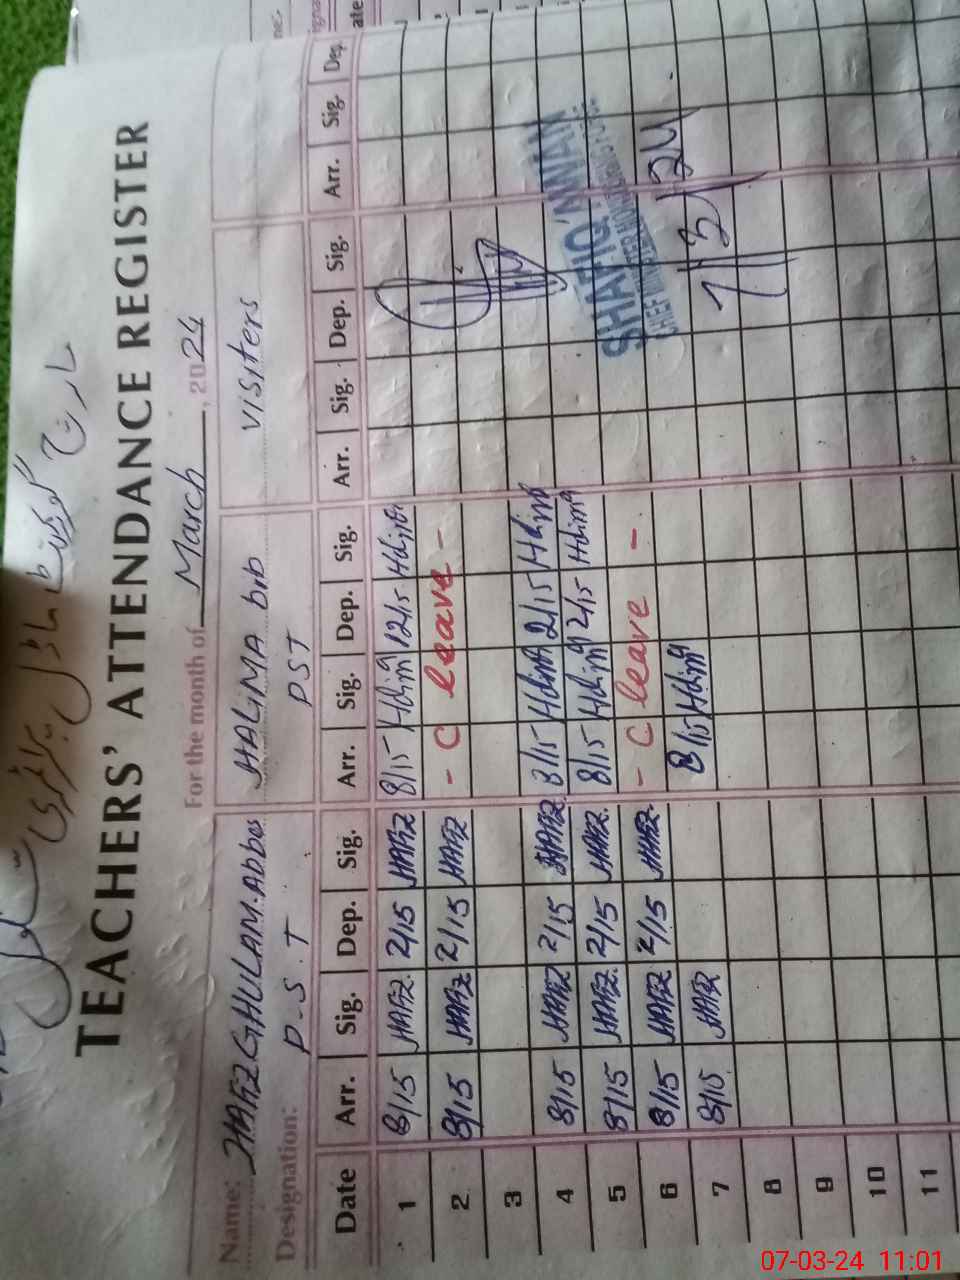 TEACHERS' ATTENDANCE REGISTER
For the month of March, 2024
Name: HAFIZ GHULAM Abbas HALIMA bibi VISITERS
Designation: P.S.T PST
Date Arr. Sig. Dep. Sig. Arr. Sig. Dep. Sig. Arr. Sig. Dep. Sig. Arr. Sig. Dep.
1 8/15 HAFIZ 2/15 HAFIZ 8/15 Halima 12/15 Halima
2 8/15 HAFIZ 2/15 HAFIZ - C leave -
3
4 8/15 HAFIZ 2/15 HAFIZ 8/15 Halima 2/15 Halima
5 8/15 HAFIZ 2/15 HAFIZ 8/15 Halima 2/15 Halima
6 8/15 HAFIZ 2/15 HAFIZ - C leave -
7 8/15 HAFIZ 8/15 Halima
8
9
10
11
SHAFIQ AWAN
7/3/24
07-03-24 11:01